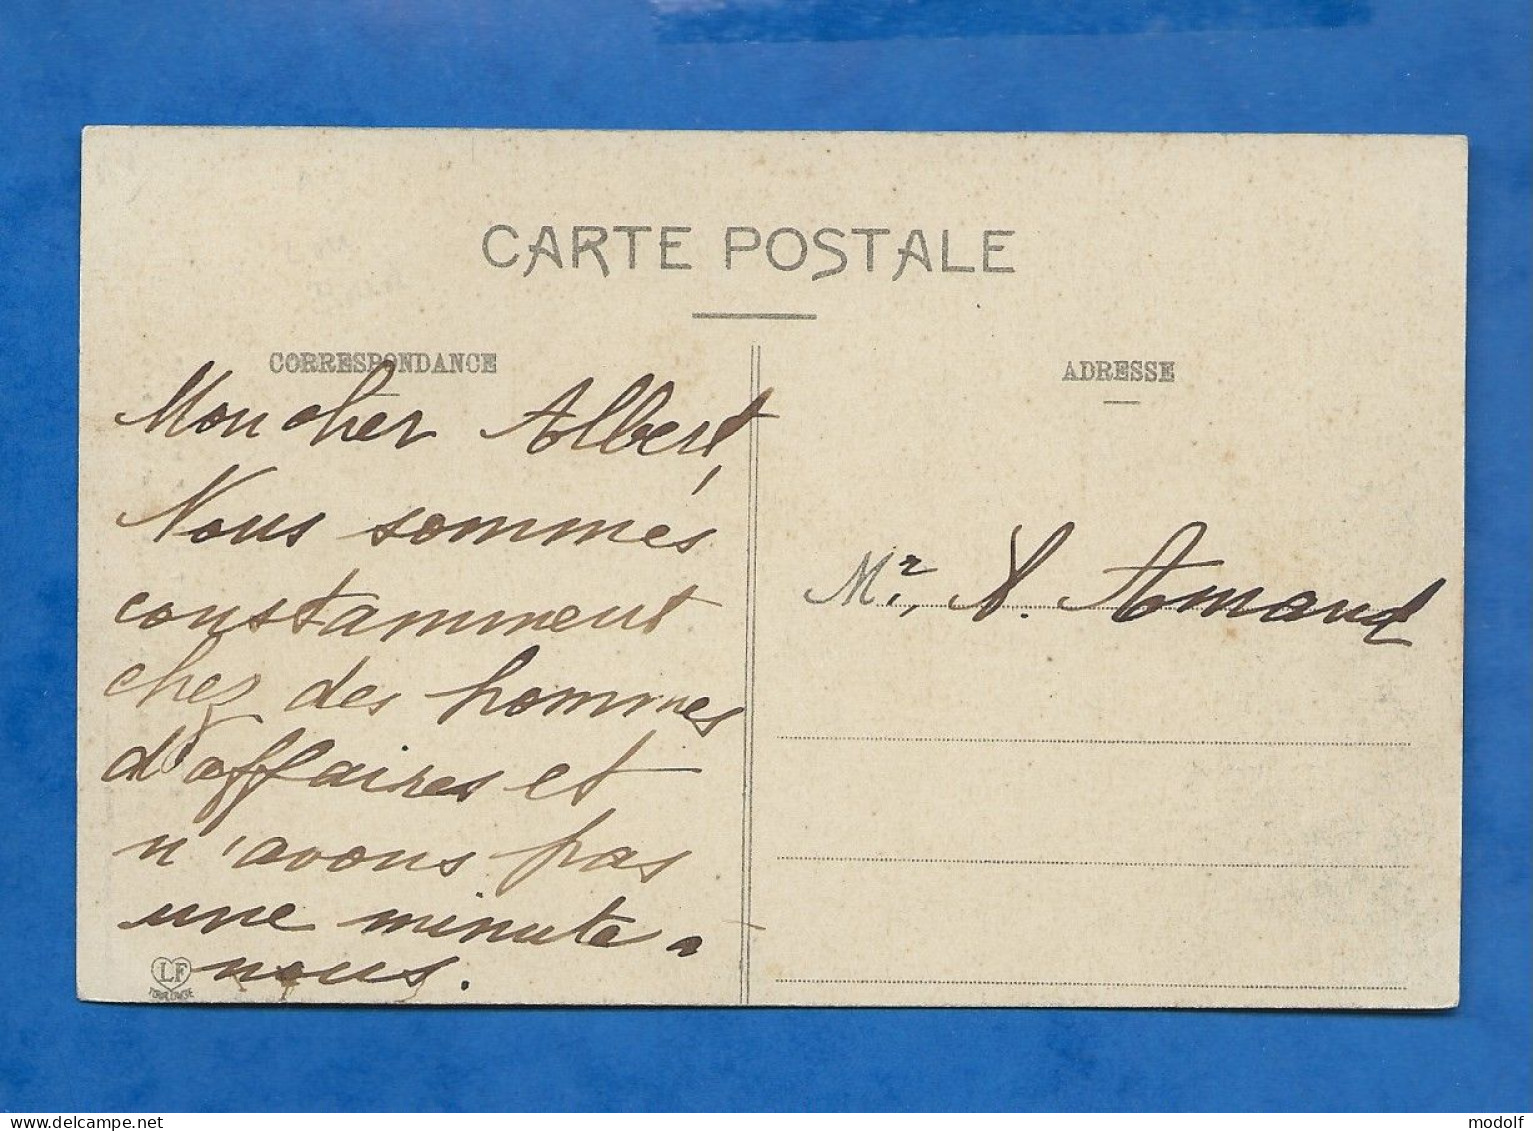 CARTE POSTALE
CORRESPONDANCE
Mon cher Albert,
Nous sommes
constamment
chez des hommes
d'affaires et
n'avons pas
une minute à
nous.
LF
TOULOUSE
ADRESSE
Mr. A. Armand
www.delcampe.net
modolf